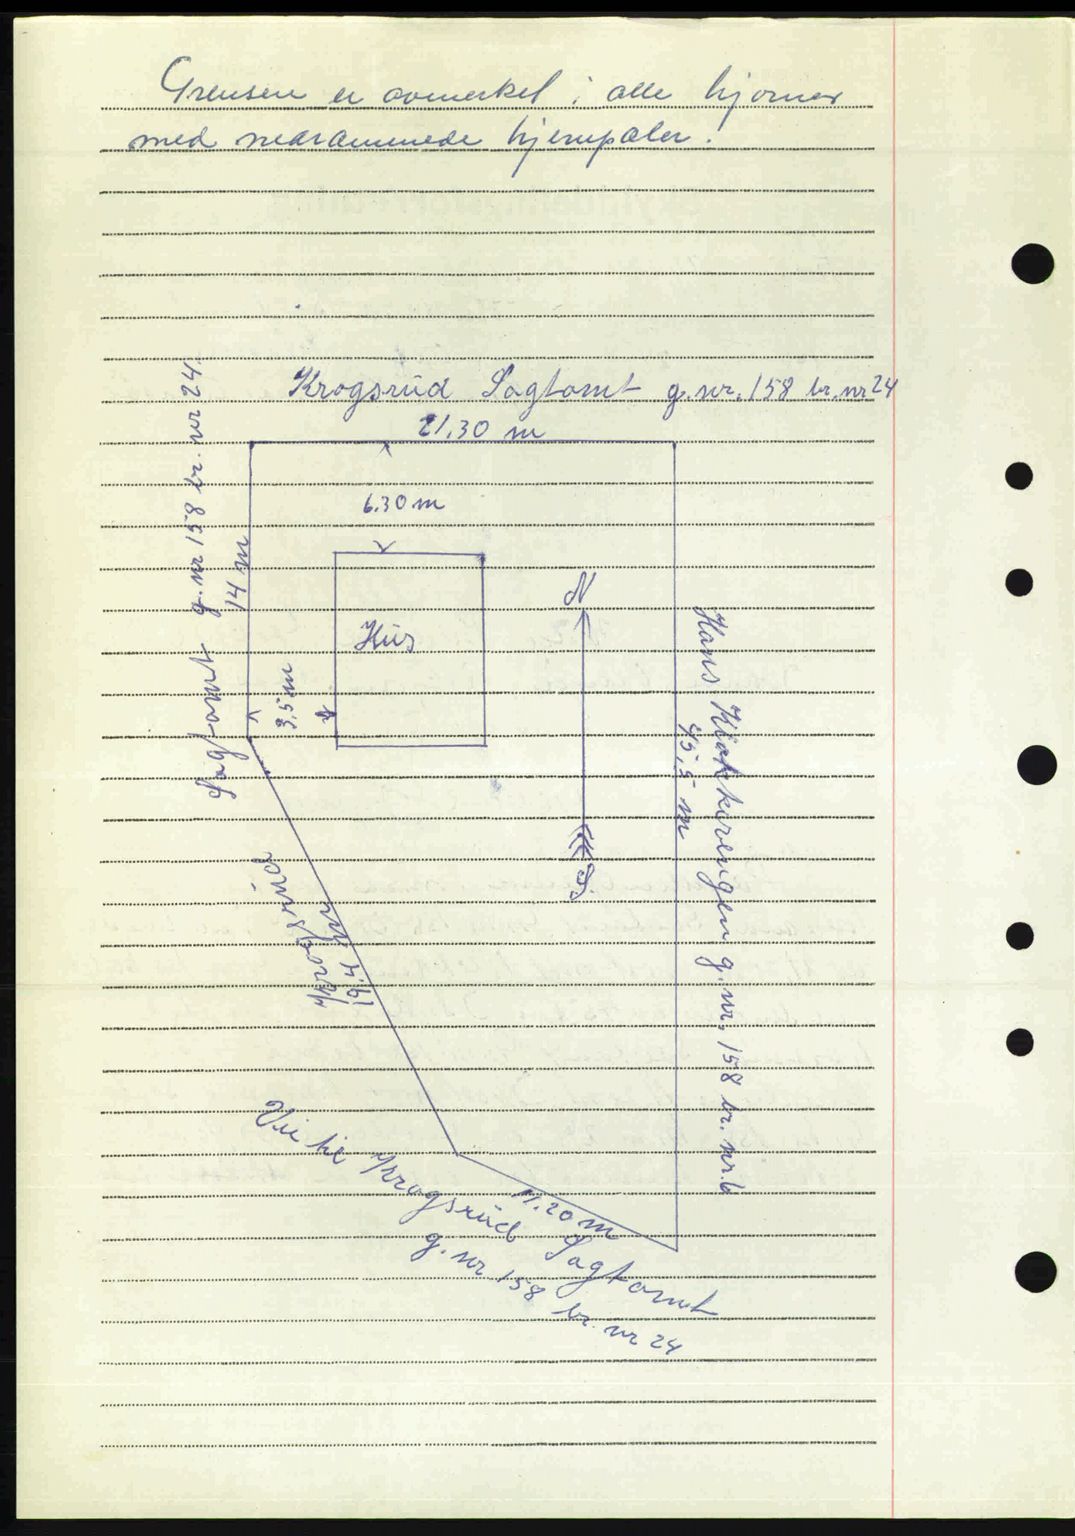 Grensen er avmerket i alle hjørner
med nedrammede hjernpæler.
Krogsrud Sagtomt g.nr. 158 br. nr 24
21.30 m
6.30 m
Hus
N
14 m
3,5 m
Krogsrud
Sagtomt g. nr 158 br. nr 24.
Hans Klokkerengen g. nr. 158 br. nr. 6
45,5 m
Vei til Krogsrud Sagtomt
g. nr 158 br. nr 24
11.20 m